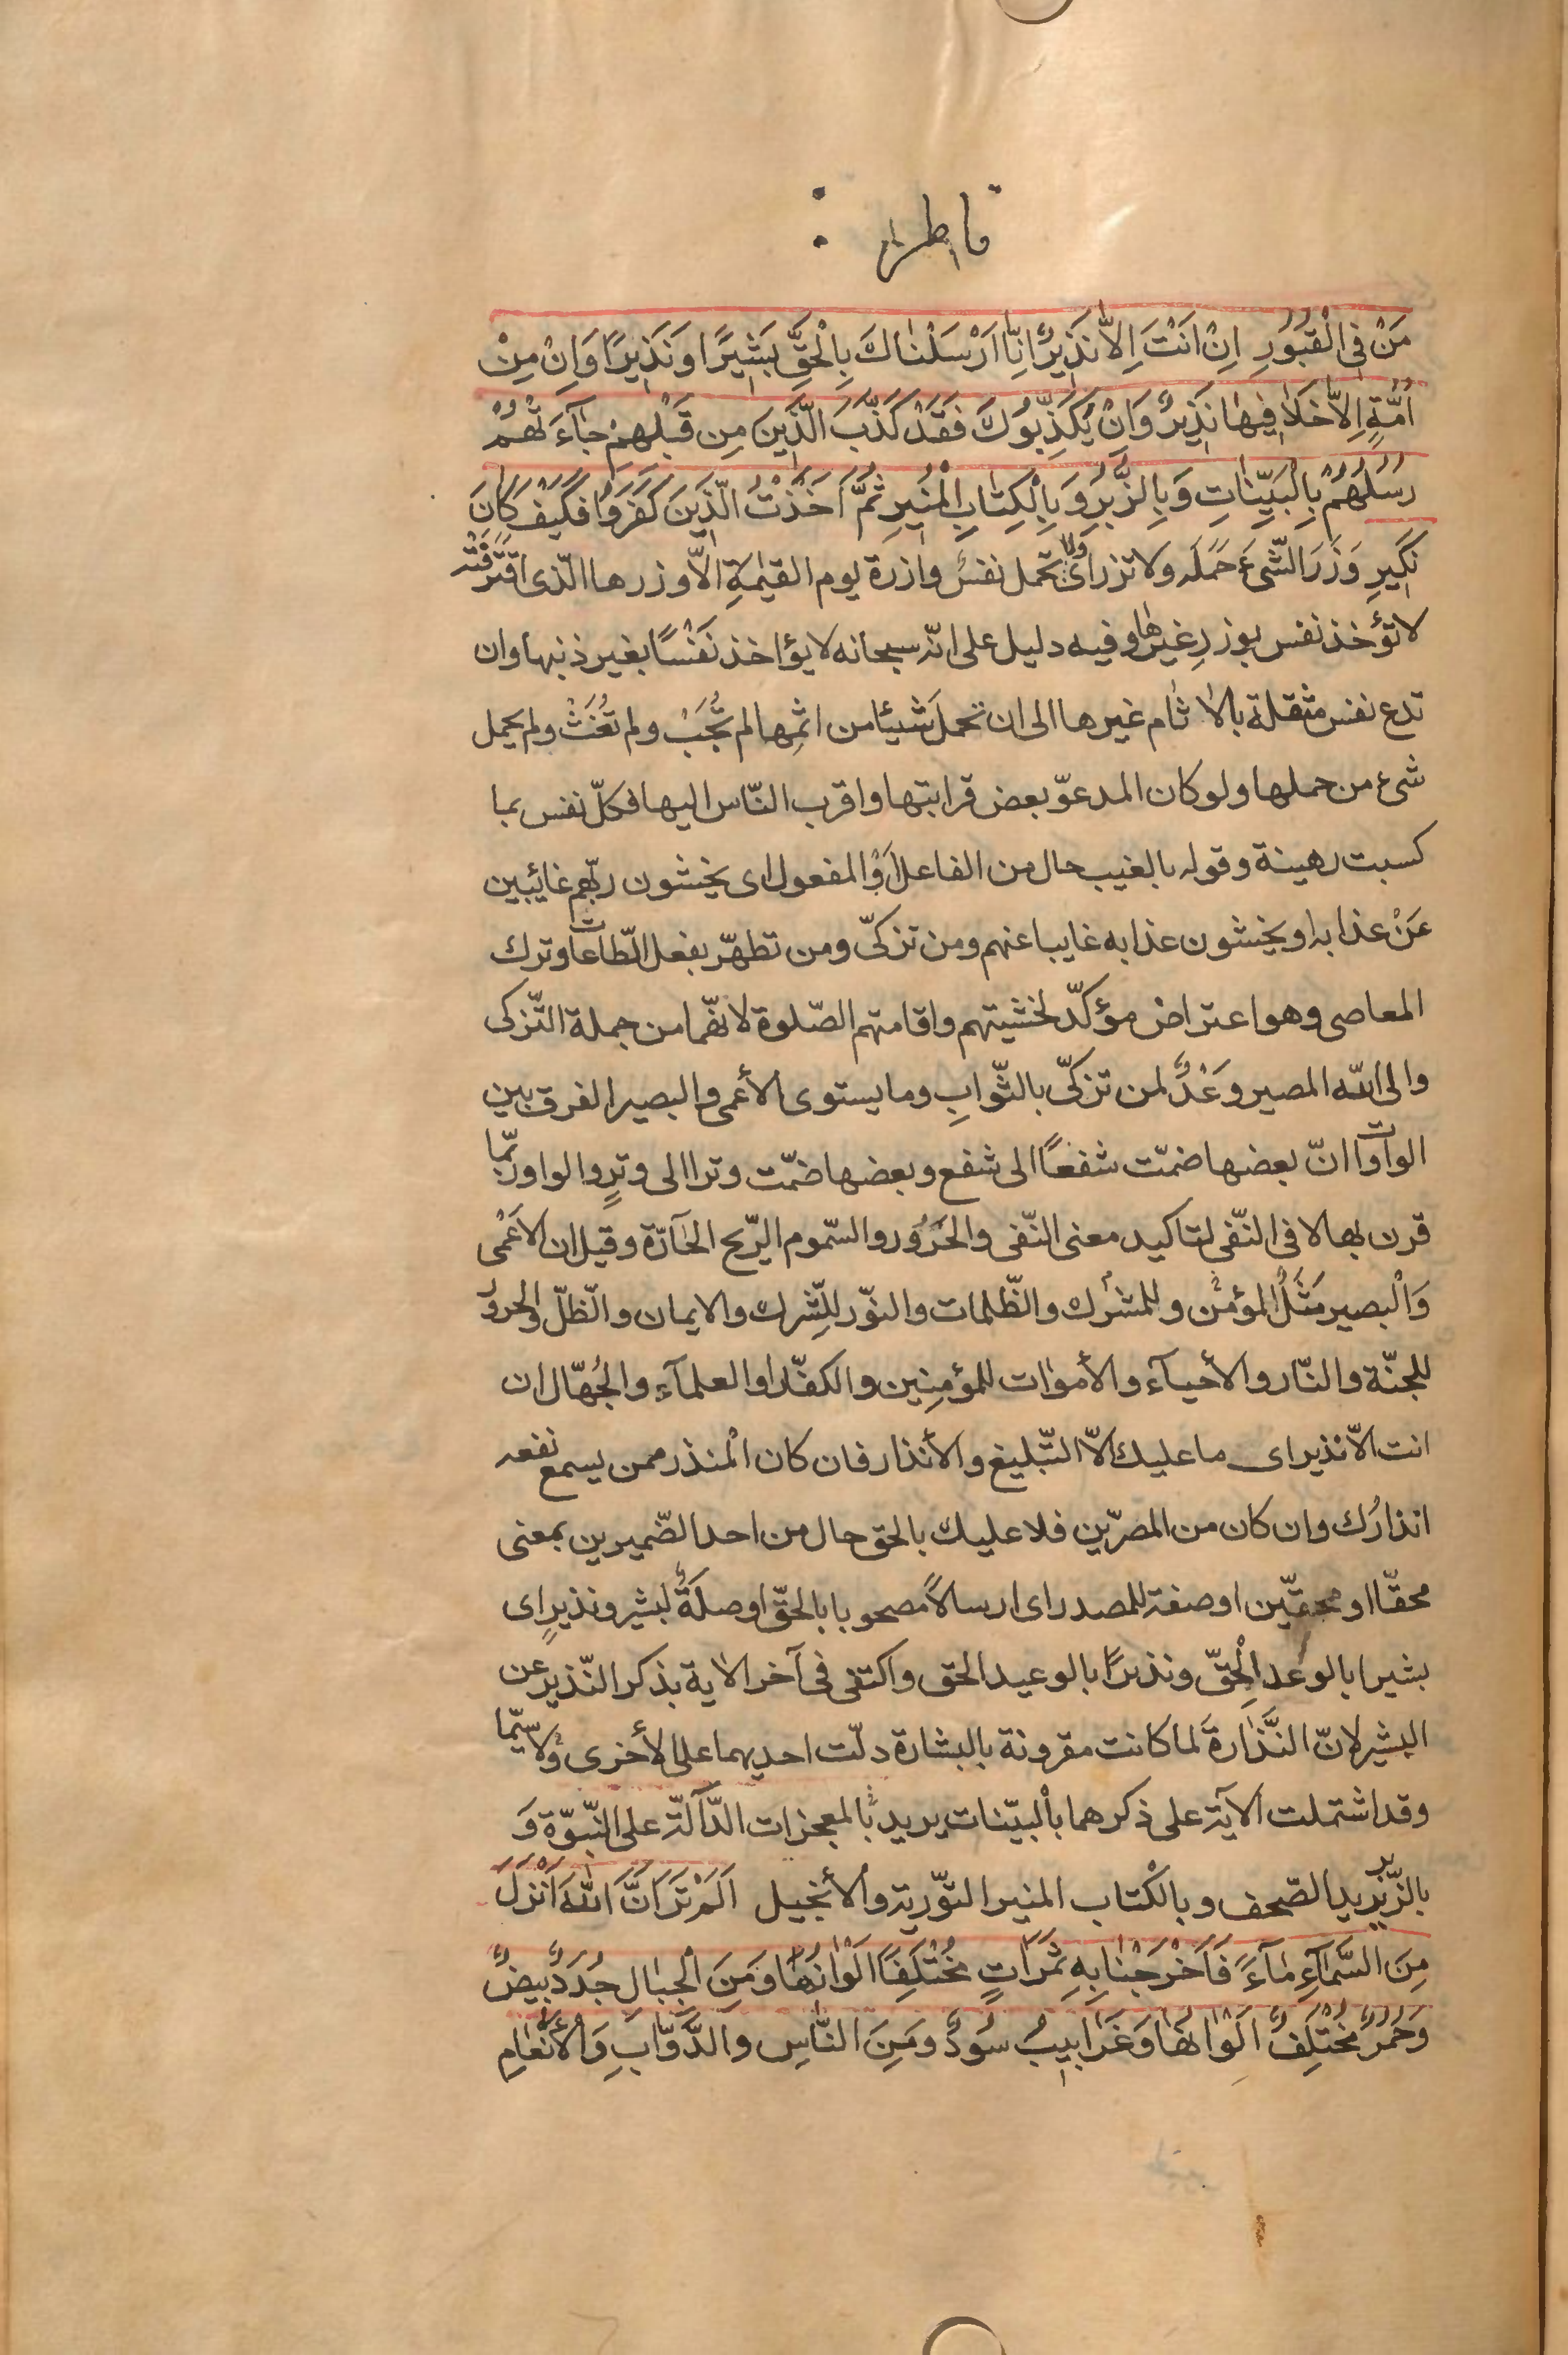 فاطر
مَنْ فِى الْقُبُورِ اِنْ اَنْتَ اِلاّٰ نَذِيرٌ اِنّٰا اَرْسَلْنٰاكَ بِالْحَقِّ بَشِيرًا وَنَذِيرًا وَاِنْ مِنْ
اُمَّةٍ اِلاّٰ خَلاٰ فِيهٰا نَذِيرٌ وَاِنْ يُكَذِّبُوكَ فَقَدْ كَذَّبَ الَّذِينَ مِن قَبْلِهِمْ جٰآءَتْهُمْ
رُسُلُهُمْ بِالْبَيِّنٰاتِ وَبِالزُّبُرِ وَبِالْكِتٰابِ الْمُنِيرِ ثُمَّ اَخَذْتُ الَّذِينَ كَفَرُوا فَكَيْفَ كَانَ
نَكِيرِ وَزَرَ الشّىءَ حَمَلَه ولا تزر اى ولا تحمل نفسٌ وازرة يوم القيٰمةِ الاّ وزرها الّذى اقْتَرَفَتْه
لا تؤخذ نفس بوزرِ غيرها وفيه دليل على انّه سبحانه لا يؤاخذ نَفْسًا بغير ذنبها وان
تدع نفس مثقلة بالاٰثام غيرها الى ان تحملَ شيئا من اثمِها لم تُجَبْ ولم تُغَثْ ولم يحمل
شىء من حملها ولو كان المدعوّ بعض قرابتها واقرب النّاس اليها فكلّ نفس بما
كسبت رهينة وقوله بالغيب حال من الفاعل اَوْ المفعول اى يخشون ربّهم غائبين
عَنْ عذابه او يخشون عذابه غايبا عنهم ومن تزكّى ومن تطهّر بفعل الطّاعات وترك
المعاصى وهو اعتراض مؤكّد لخشيتهم واقامتهم الصّلوة لانهّما من جملة التّزكى
والى اللّه المصير وَعْدٌ لمن تزكّى بالثّوابِ وما يستوى الأعمى والبصير الفرق بين
الواوات انّ بعضها ضمّت شفعًا الى شفع وبعضها ضمّت وترا الى وترٍ والواو ربّما
قرن بها لا فى النّفى لتاكيد معنى النّفى والحَرُور والسّموم الرّيح الحٰارّة وقيل ان الاَعْمٰى
وَالْبصير مَثَلُ المؤمن وللمشرك والظّلمات والنوّر للِشّرك والايمان والظّلّ والحرورُ
للجنّة والنّار والأحيآء والأموٰات للمؤمِنِين والكفّار او العلمآء والجُهّال ان
انت الاّ نذير اى ما عليك الاّ التّبليغ والأنذار فان كان المُنذر ممن يسمع نفعه
انذارُك وان كان من المصرّين فلا عليك بالحق حال من احد الضّميرين بمعنى
محقّا او محقّين او صفة للمصدر اى ارسالاً مصحوبا بالحقّ او صلةً لبشير ونذيرٍ اى
بشيرا بالوعد الْحِقّ ونذيرًا بالوعيد الحق واكتفى فى آخر الاٰية بذكر النّذير عن
البشير لانّ النَّذٰارةَ لما كانت مقرونة بالبشارة دلّت احديهما على الأخرى ولا سيّما
وقد اشتملت الاية على ذكرهما بالْبيّنات يريد بالمعجزات الدّالّة على النّبوّة وَ
بالزّبر يريد الصّحف وبالْكتاب المنير التوّرية والأنجيل اَلَمْ تَرَ اَنَّ اللّٰهَ اَنْزَلَ
مِنَ السَّمٰآءِ مٰآءً فَاَخْرَجْنٰا بِهِ ثَمَرٰاتٍ مُخْتَلِفًا اَلْوٰانُهٰا وَمِنَ الْجِبٰالِ جُدَدٌ بِيضٌ
وَحُمْرٌ مُخْتَلِفٌ اَلْوٰانُهٰا وَغَرٰابِيبُ سُودٌ وَمِنَ النّٰاسِ وَالدَّوٰابِّ وَالْأَنْعٰامِ